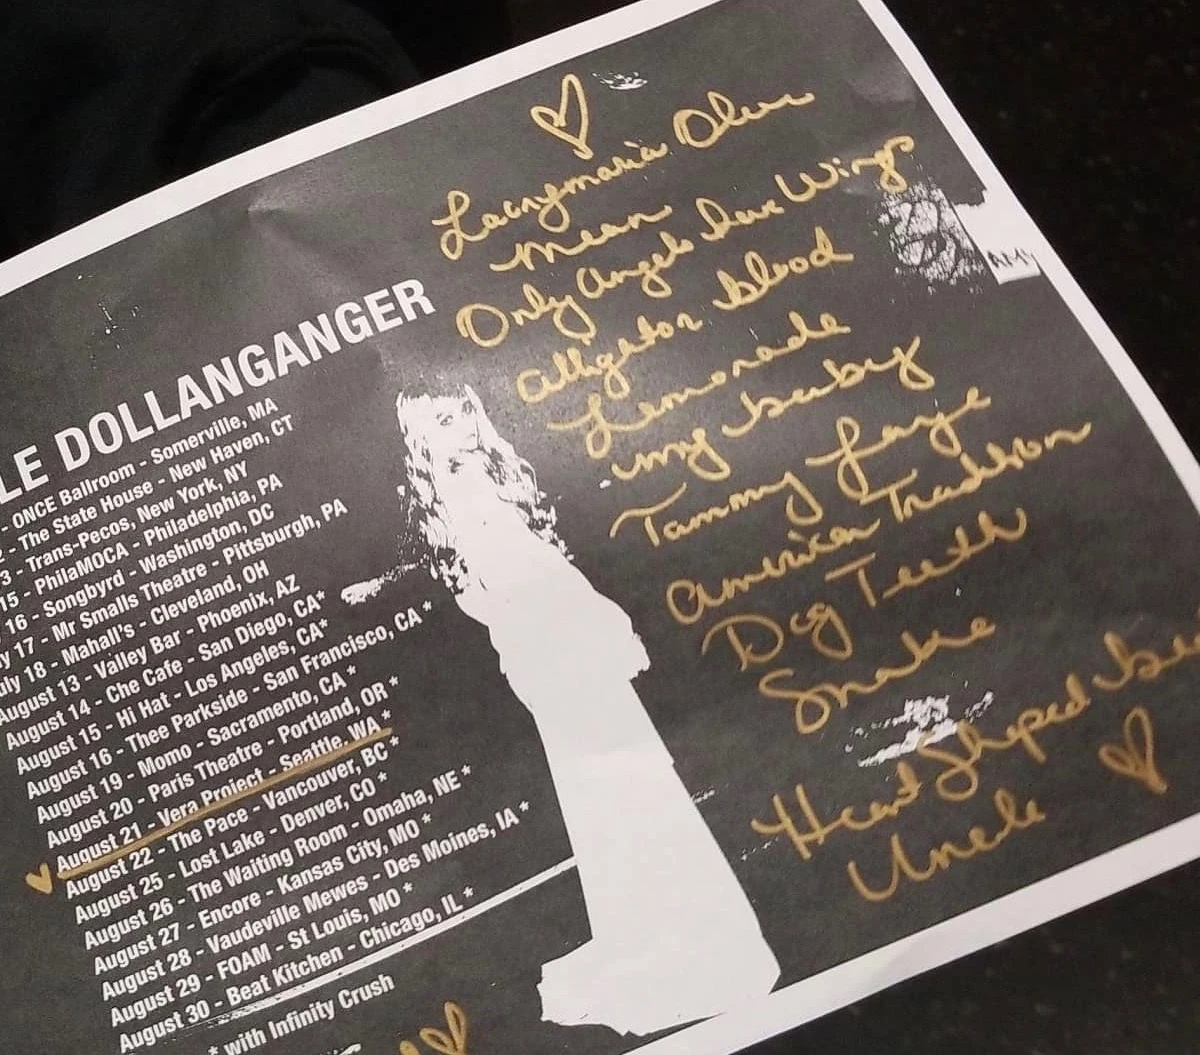 LE DOLLANGANGER
- ONCE Ballroom - Somerville, MA
2 - The State House - New Haven, CT
3 - Trans-Pecos, New York, NY
15 - PhilaMOCA - Philadelphia, PA
16 - Songbyrd - Washington, DC
y 17 - Mr Smalls Theatre - Pittsburgh, PA
uly 18 - Mahall's - Cleveland, OH
August 13 - Valley Bar - Phoenix, AZ
August 14 - Che Cafe - San Diego, CA*
August 15 - Hi Hat - Los Angeles, CA*
August 16 - Thee Parkside - San Francisco, CA *
August 19 - Momo - Sacramento, CA *
August 20 - Paris Theatre - Portland, OR *
August 21 - Vera Project - Seattle, WA *
August 22 - The Pace - Vancouver, BC *
August 25 - Lost Lake - Denver, CO *
August 26 - The Waiting Room - Omaha, NE *
August 27 - Encore - Kansas City, MO *
August 28 - Vaudeville Mewes - Des Moines, IA *
August 29 - FOAM - St Louis, MO *
August 30 - Beat Kitchen - Chicago, IL *
* with Infinity Crush
Lacrymaria Olor
Mean
Only Angels have Wings
Alligator blood
Lemonade
my baby
Tammy Faye
American Tradition
Dog Teeth
Snake
Heart Shaped Be
Uncle